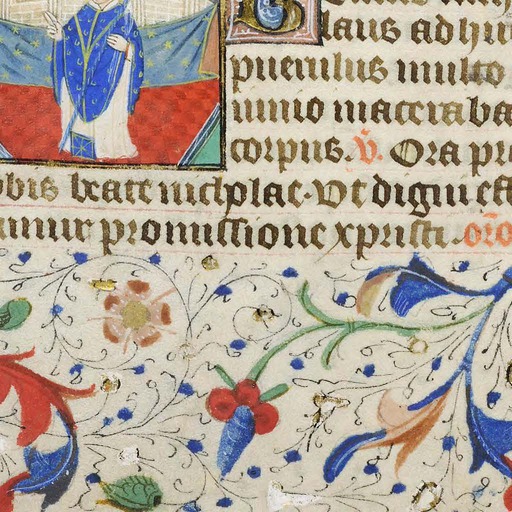 laus adhuc
puerulus multo
iunio macerabat
corpus. V. Ora pro
nobis beate nicholae. Vt digni effi
amur promissione xpristi. oro